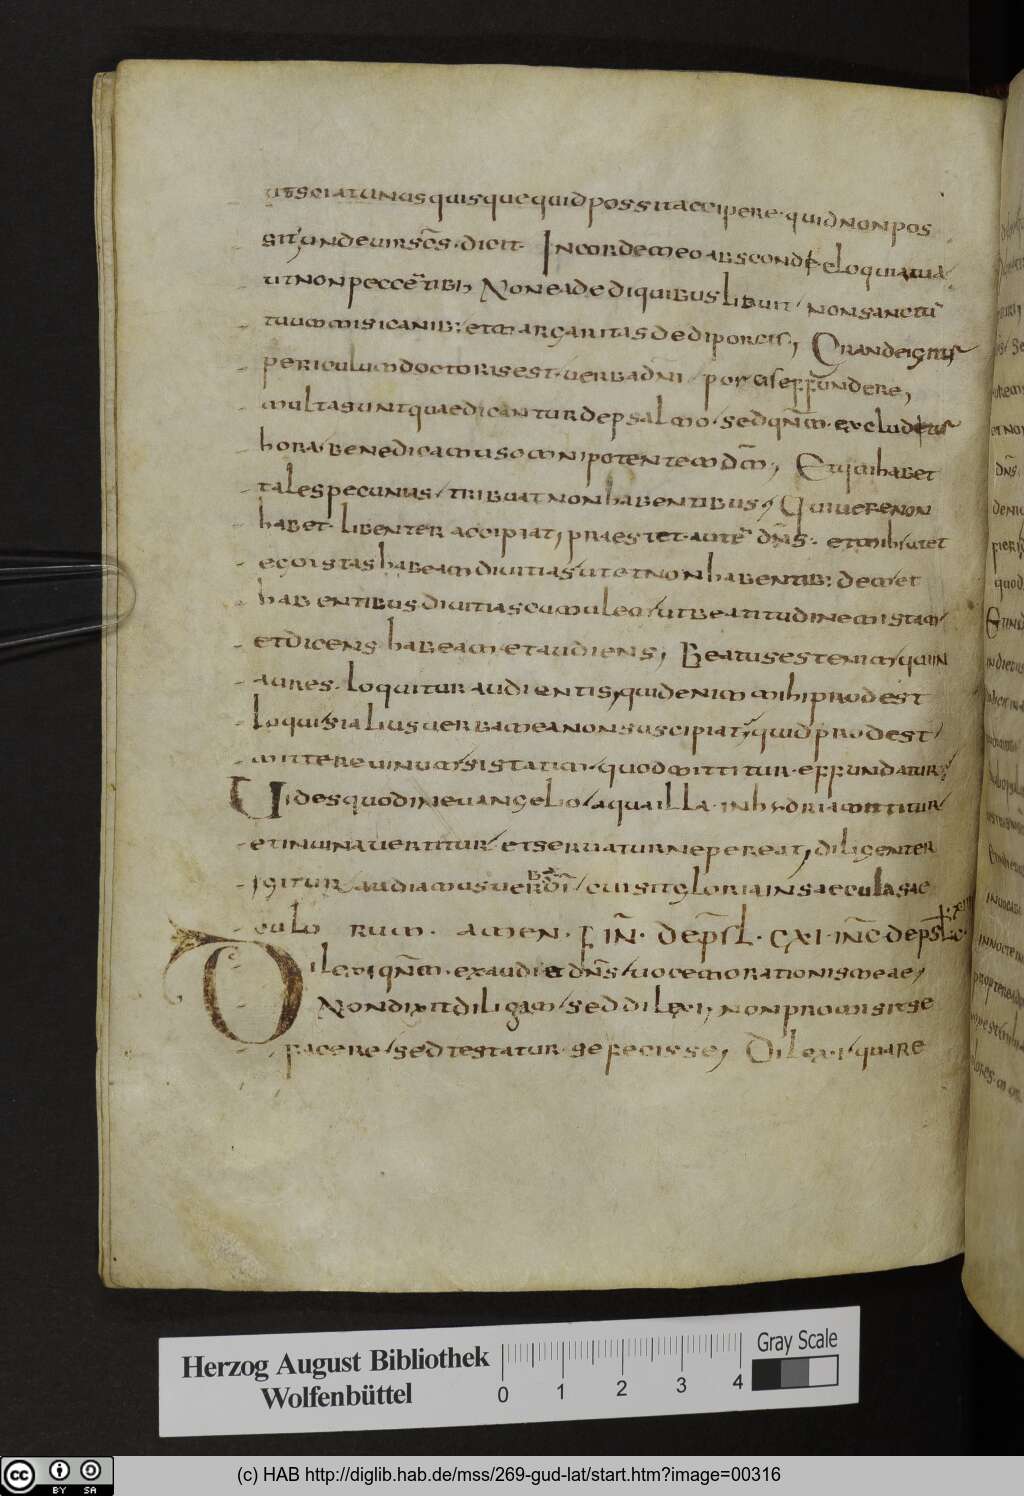 utsciat unusquisque quid possit accipere· quid non pos
sit; unde vir scs· dicit· In corde meo abscondi eloquia tua
ut non peccē tibi; Non ea dedi quibus libuit/ non sanctū
tuum misi canib: et margaritas dedi porcis; Grande igitur
periculum doctoris est· verba dni/ porcis effundere,
multa sunt quae dicantur de psalmo/ sed qnm· excludetur
hora/ benedicamus omnipotentem dm; Et qui habet
tales pecunias/ tribuat non habentibus; Qui vere non
habet· libenter accipiat, praestet· autē dns· et mihi utet
ego istas habeam divitias ut et non habentib: dem et
habentibus divitias cumulem/ ut beatitudinem istam/
et dicens habeam· et audiens; Beatus est enim/ qui in
aures· loquitur audientis, quid enim mihi prodest
loqui/ si alius verba mea non suscipiat, quid prodest/
mittere vinum/ si statim· quod mittitur· effundatur;
Vides quod in euangelio/ aqua illa· in hydria mittitur/
et in vina vertitur/ et servatur ne pereat, diligenter
igitur/ audiamus verbū dī/ cui sit gloria in saecula sae
culo rum· amen· FIN· DE PSL· CXI· INC DE PSL C·XIIII
Dilexi qnm· exaudiet dns/ vocem orationis meae,
Non dixit diligam/ sed dilexi; non promisit se
facere/ sed testatur· se fecisse, Dilexi/ quare
Herzog August Bibliothek
Wolfenbüttel
0 1 2 3 4
Gray Scale
cc BY SA
(c) HAB http://diglib.hab.de/mss/269-gud-lat/start.htm?image=00316